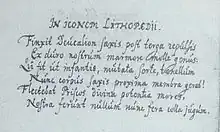 IN ICONEM LITHOPÆDII.
Finxit Deucalion saxis post terga repulsis
Ex duro nostrum marmore genus:
fit ut infantis, mutata sorte, tenellum
Nunc corpus saxis proxima membra gerat?
Flectebat Priscos divina potentia mores:
Nostra feriat nullum nunc fera colla jugum.